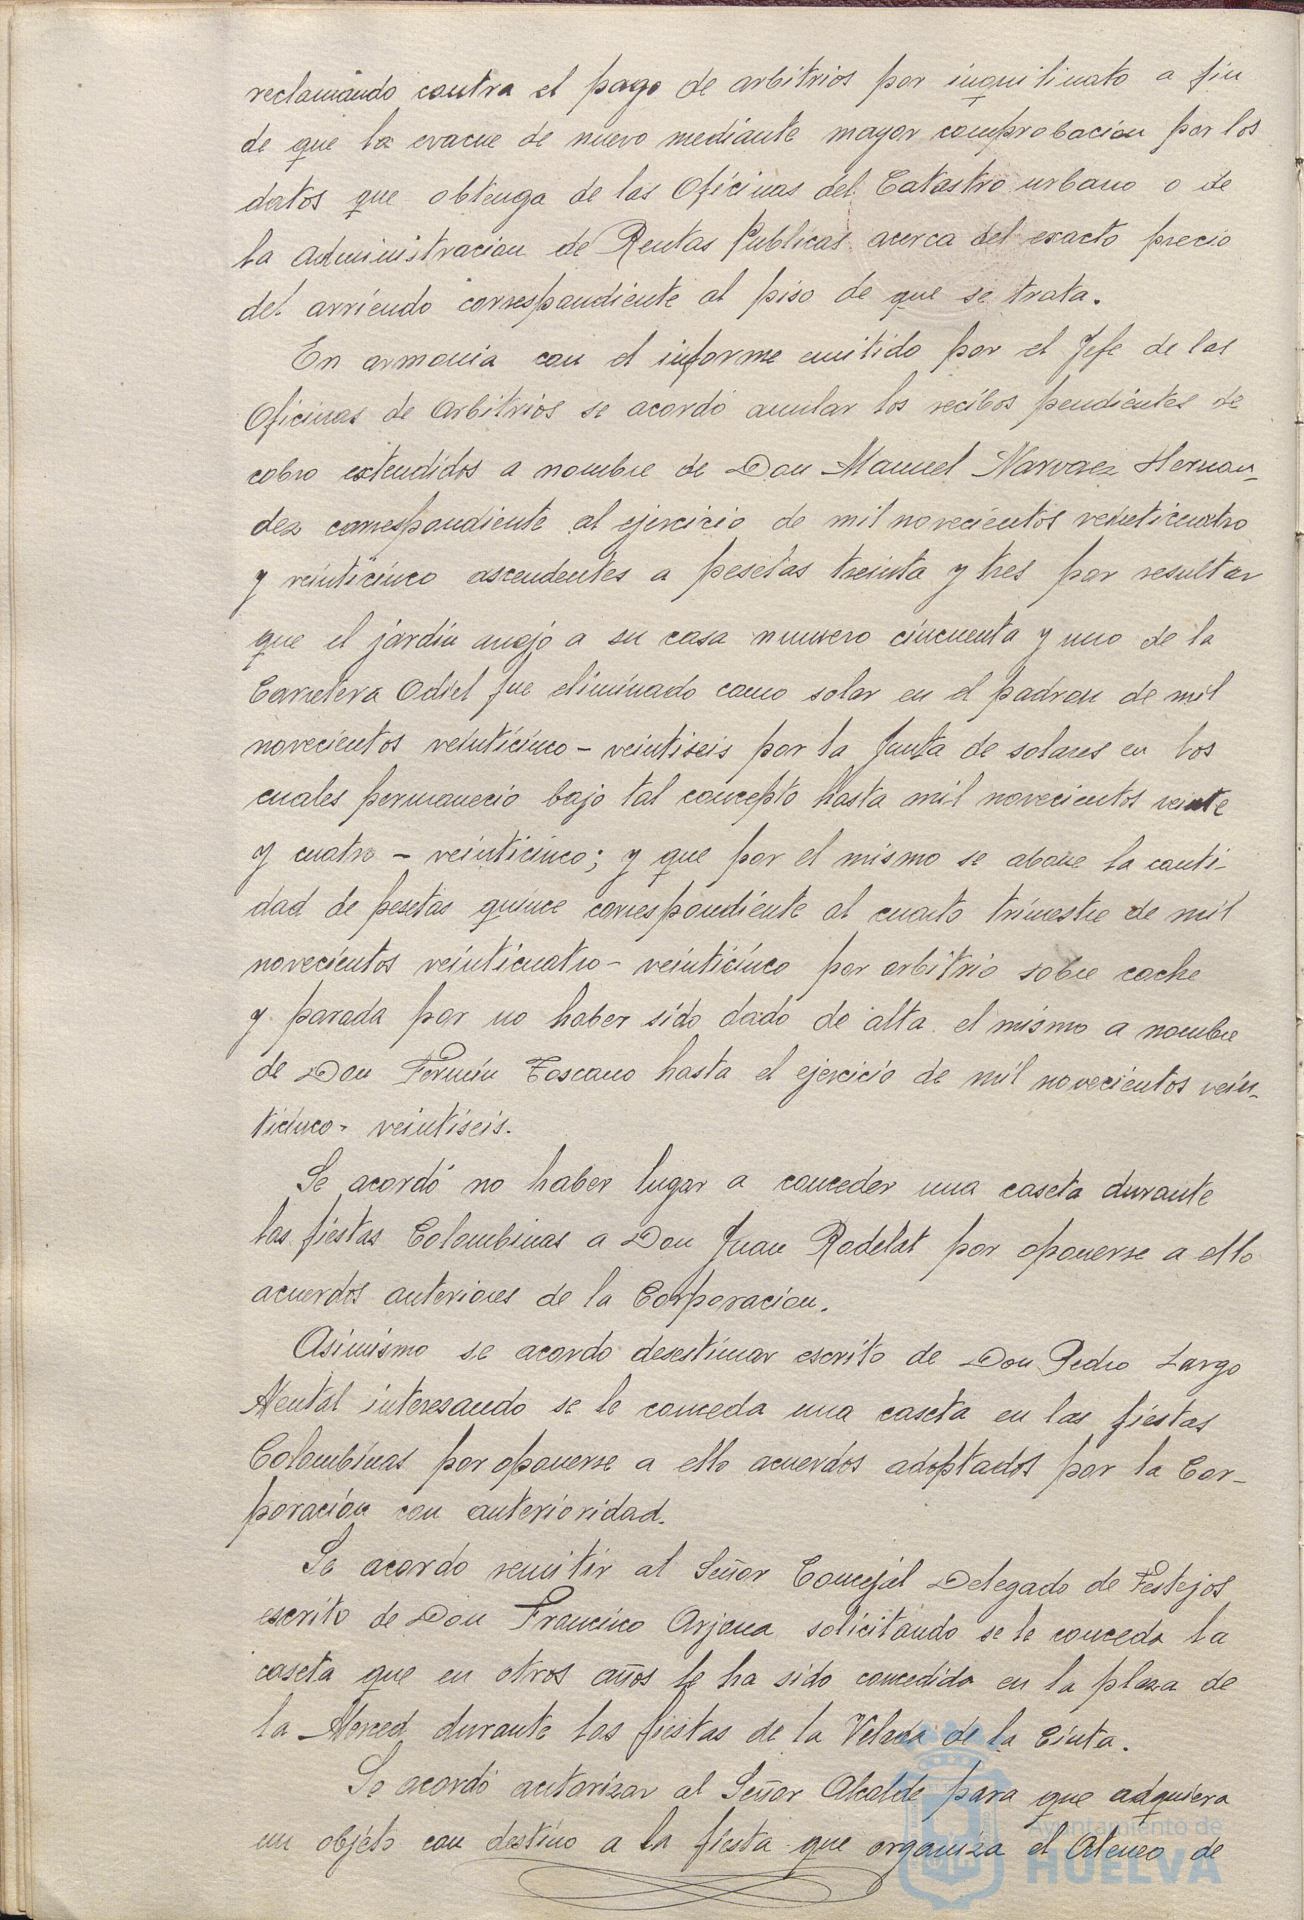 reclamando contra el pago de arbitrios por inquilinato a fin
de que la evacue de nuevo mediante mayor comprobacion por los
datos que obtenga de las Oficinas del Catastro urbano o de
la Administracion de Rentas Publicas acerca del exacto precio
del arriendo correspondiente al piso de que se trata.
En armonia con el informe emitido por el Jefe de las
Oficinas de Arbitrios se acordó anular los recibos pendientes de
cobro extendidos a nombre de Don Manuel Narvaez Hernan-
dez correspondiente al ejercicio de mil novecientos veinticuatro
y veinticinco ascendentes a pesetas treinta y tres por resultar
que el jardin anejo a su casa numero cincuenta y uno de la
Carretera Odiel fue eliminado como solar en el padron de mil
novecientos veinticinco - veintiseis por la Junta de solares en los
cuales permanecio bajo tal concepto hasta mil novecientos veinte
y cuatro - veinticinco; y que por el mismo se abone la canti-
dad de pesetas quince correspondiente al cuarto trimestre de mil
novecientos veinticuatro - veinticinco por arbitrio sobre coche
y parada por no haber sido dado de alta el mismo a nombre
de Don Fermín Toscano hasta el ejercicio de mil novecientos vein-
ticinco - veintiseis.
Se acordó no haber lugar a conceder una caseta durante
las fiestas Colombinas a Don Juan Rodelat por oponerse a ello
acuerdos anteriores de la Corporacion.
Asimismo se acordo desestimar escrito de Don Pedro Largo
interesando se le conceda una caseta en las fiestas
Colombinas por oponerse a ello acuerdos adoptados por la Cor-
poración con anterioridad.
Se acordo remitir al Señor Concejal Delegado de Festejos
escrito de Don Francisco Arjona solicitando se le conceda la
caseta que en otros años le ha sido concedida en la plaza de
la Merced durante las fiestas de la Velada de la Cinta.
Se acordó autorizar al Señor Alcalde para que adquiera
un objeto con destino a la fiesta que organiza el Ateneo de
Ayuntamiento de
HUELVA